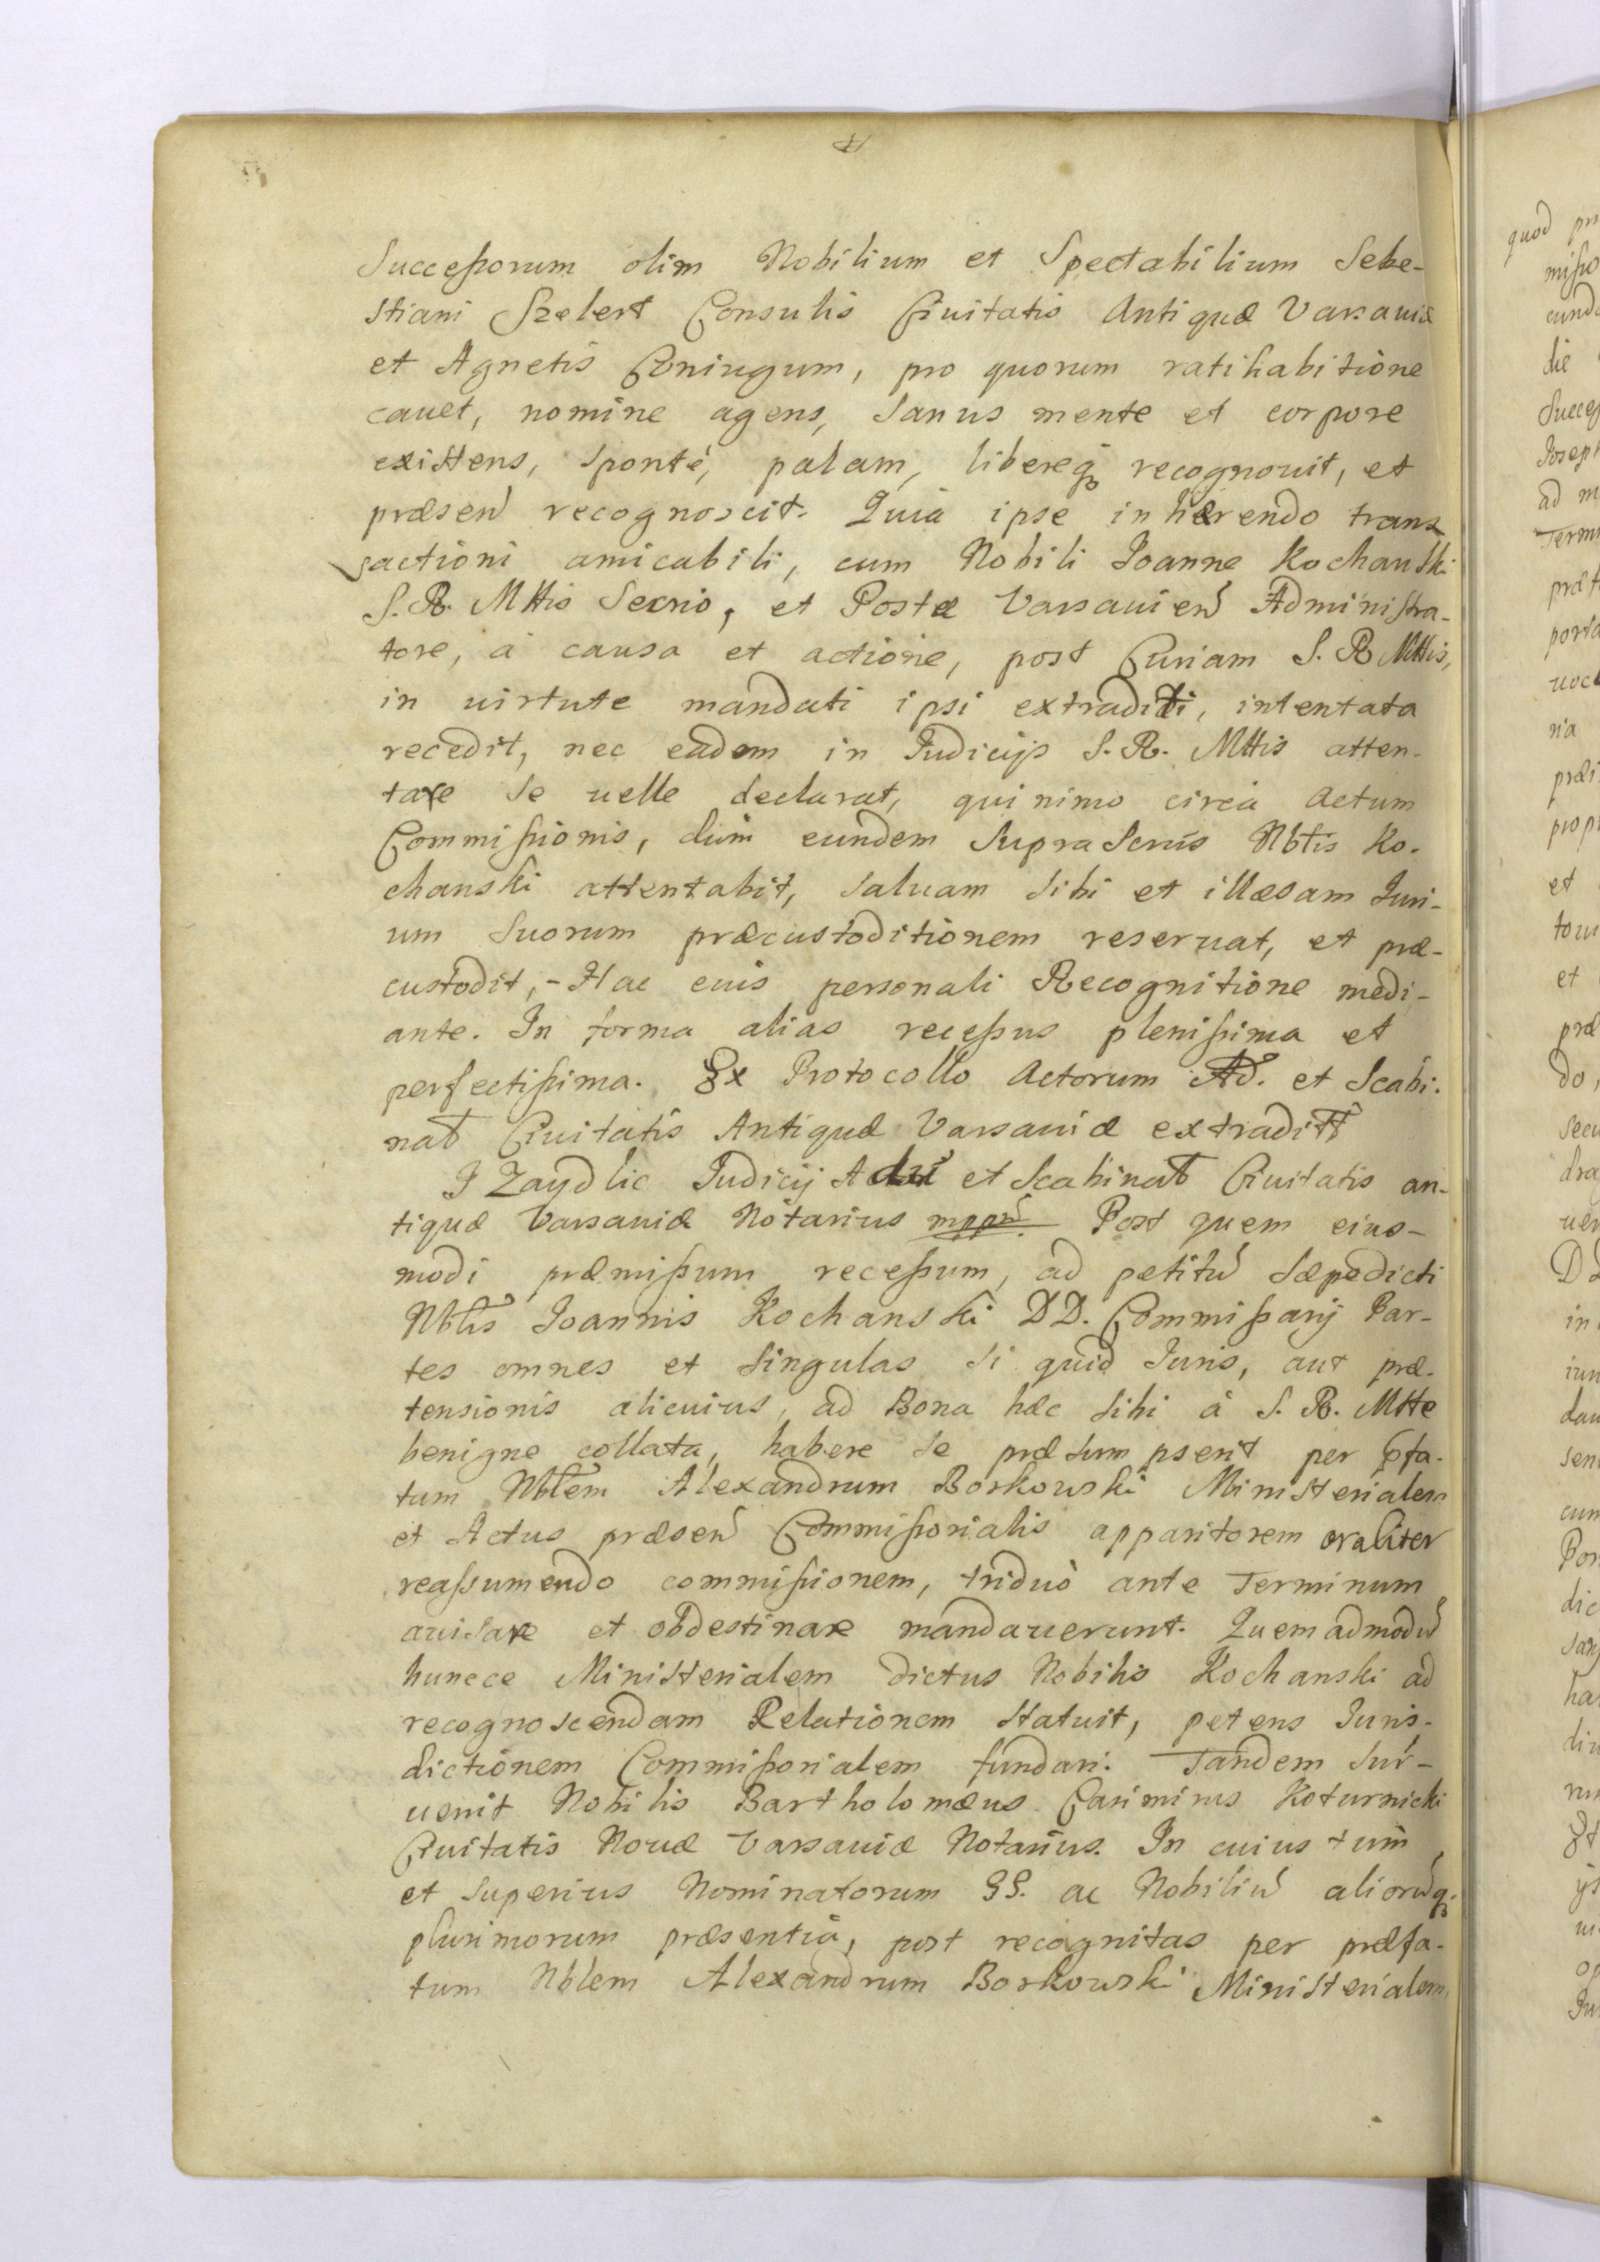 Successorum olim Nobilium et Spectabilium Seba-
stiani Szelert Consulis Ciuitatis Antiquæ Varsauiæ
et Agnetis Coniugum, pro quorum ratihabitione
cauet, nomine agens, sanus mente et corpore
existens, sponte, palam, libereq₃ recognouit, et
præsen̄ recognoscit. Quia ipse inhærendo trans
sactioni amicabili, cum Nobili Joanne Kochanski
S. R. Mttis Secrio, et Postæ Varsauien̄ Administra-
tore, à causa et actione, post Curiam S. R Mttis,
in uirtute mandati ipsi extraditi, intentata
recedit, nec eadem in Judicijs S. R. Mttis atten-
tare se uelle declarat, quinimo circa Actum
Commissionis, dum eundem supra Scrus Nbtis Ko-
chanski attentabit, saluam sibi et illæsam Juri-
um suorum præcustoditionem reseruat, et præ-
custodit, - Hac eius personali Recognitione medi-
ante. In forma alias recessus plenissima et
perfectissima. Ex Protocollo Actorum Ad. et Scabi-
nat Ciuitatis Antiquæ Varsauiæ extradit
J Zaydlic Judicij Adu et Scabinat Ciuitatis an-
tiquæ Varsauiæ Notarius mppr̄. Post quem eius-
modi præmissum recessum, ad petitū sæpedicti
Nblis Joannis Kochanski DD. Commissarij Par-
tes omnes et singulas si quid Juris, aut præ-
tensionis alicuius, ad Bona hæc sibi à S. R. Mtte
benigne collata, habere se præsumpserit per p̄fa-
tum Nblem Alexandrum Borkowski Ministerialem
et Actus præsen̄ Commissorialis apparitorem oraliter
reassumendo commissionem, triduò ante Terminum
auisare et obdestinare mandauerunt. Quemadmodū
huncce Ministerialem dictus Nobilis Kochanski ad
recognoscendam Relationem statuit, petens Juris-
dictionem Commissorialem fundari. Tandem sur-
uenit Nobilis Bartholomæus Casimirus Koturnicki
Ciuitatis Nouæ Varsauiæ Notarius. In cuius tum
et superius Nominatorum GG. ac Nobiliū aliorūq₃
plurimorum præsentia, post recognitas per præfa-
tum Nblem Alexandrum Borkowski Ministerialem,